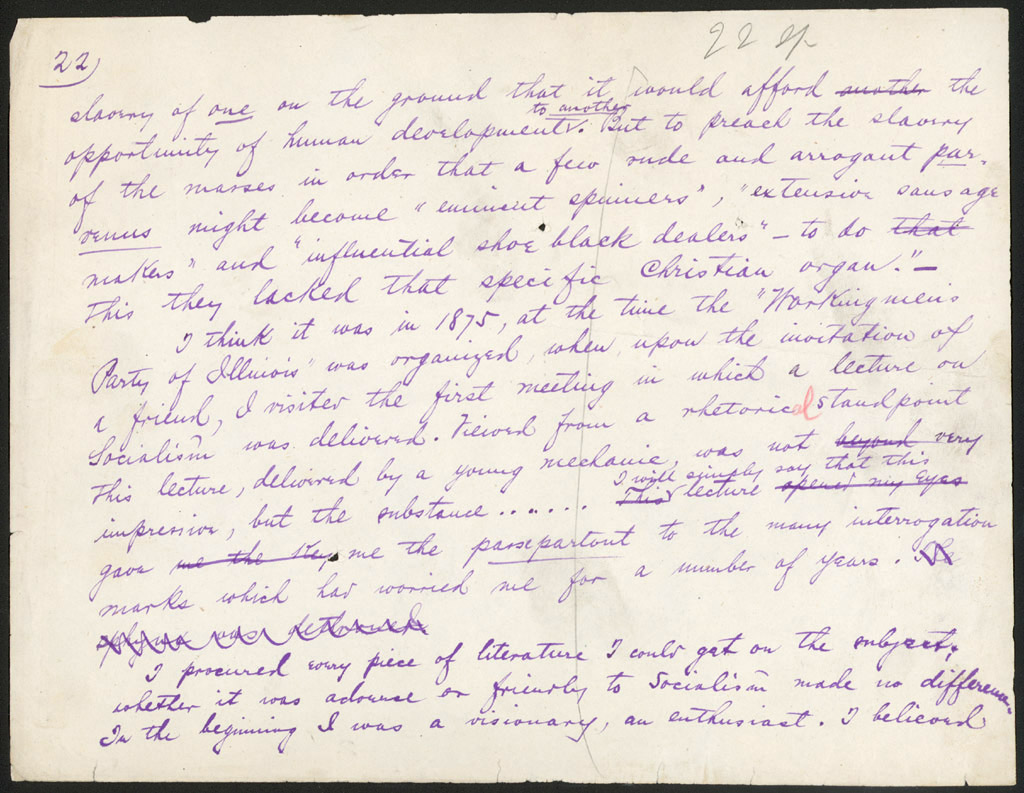 22)
22
slavery of one on the ground that it would afford another the
to another
opportunity of human development. But to preach the slavery
of the masses in order that a few rude and arrogant par-
venus might become "eminent spinners", "extensive sausage
makers" and "influential shoe black dealers" – to do that
this they lacked that specific Christian organ." –
I think it was in 1875, at the time the "Workingmen's
Party of Illinois" was organized, when upon the invitation of
a friend, I visited the first meeting in which a lecture on
Socialism was delivered. Viewed from a rhetorical standpoint
this lecture, delivered by a young mechanic, was not beyond very
I will simply say that this
impressive, but the substance ....... This lecture opened my eyes
gave me the key me the passepartout to the many interrogation
marks which had worried me for a number of years. The
was
I procured every piece of literature I could get on the subject,
whether it was adverse or friendly to Socialism made no difference.
In the beginning I was a visionary, an enthusiast. I believed